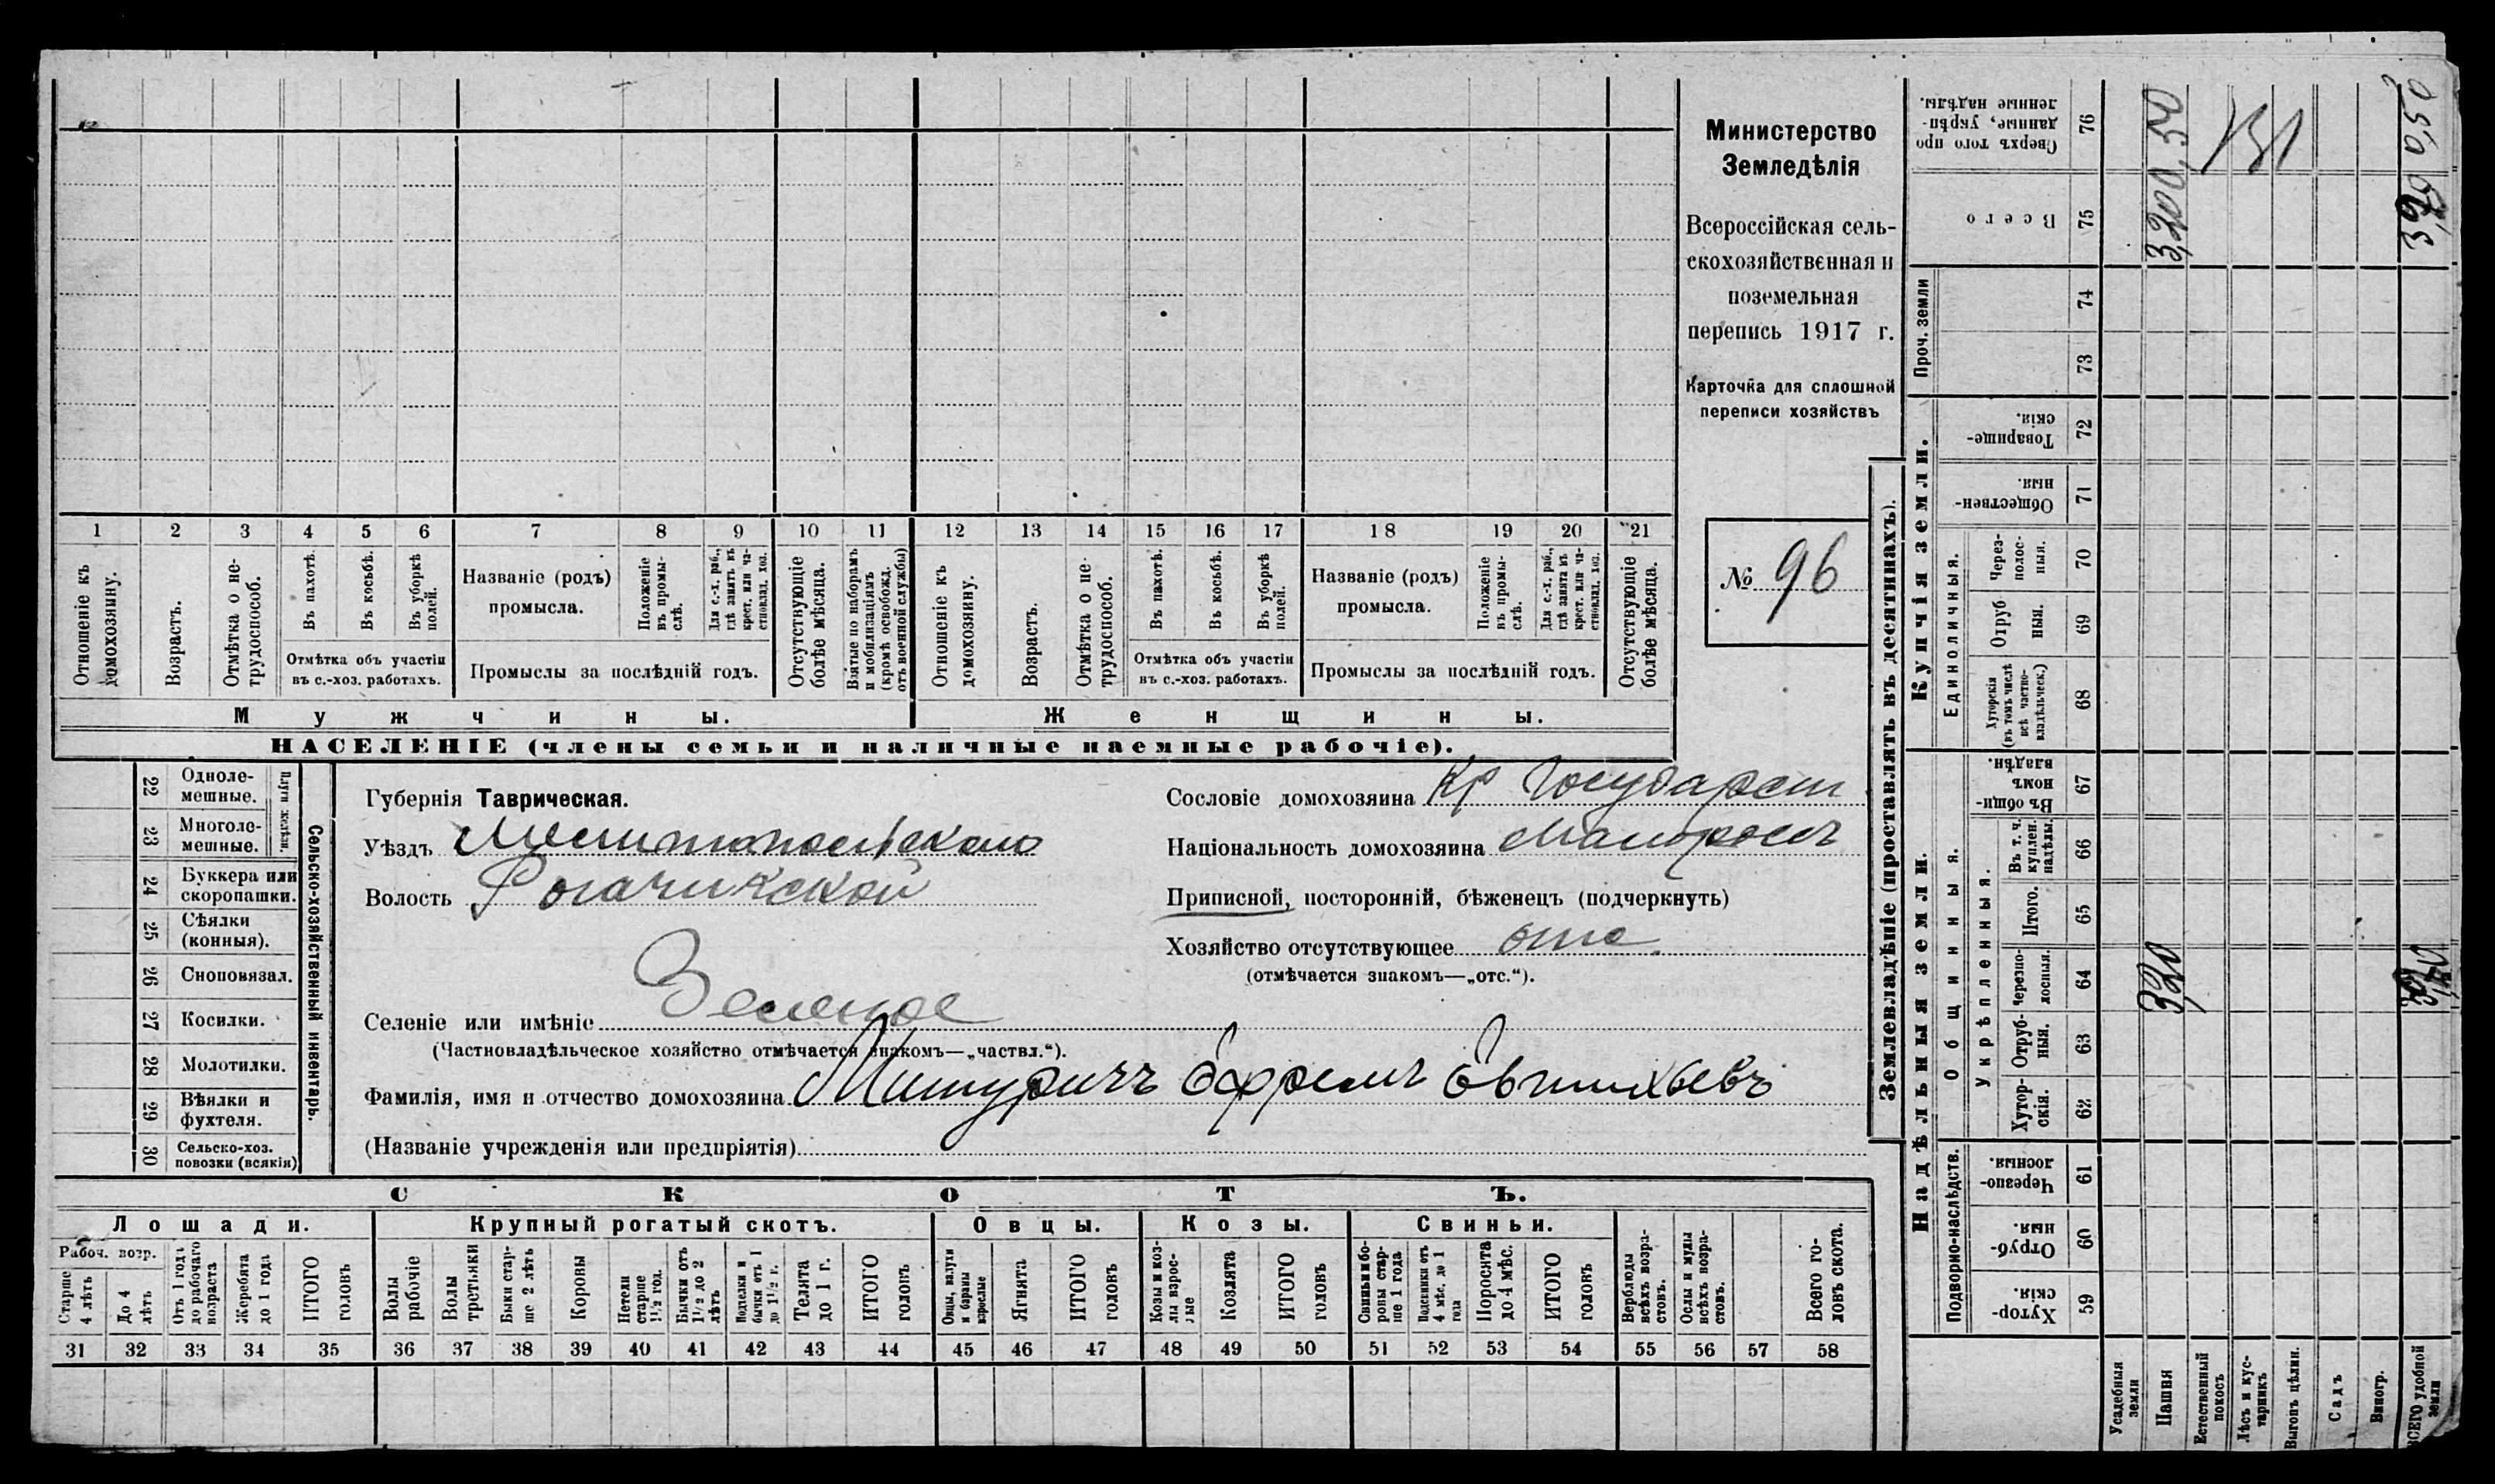 Министерство
Земледѣлія
Всероссійская сель-
скохозяйственная и
поземельная
перепись 1917 г.
Карточка для сплошной
переписи хозяйствъ
№ 96
1 2 3 4 5 6 7 8 9 10 11 12 13 14 15 16 17 18 19 20 21
Отношеніе къ домохозяину.
Возрастъ.
Отмѣтка о не-трудоспособ.
Въ пахотѣ.
Въ косьбѣ.
Въ уборкѣ полей.
Отмѣтка объ участіи
въ с.-хоз. работахъ.
Названіе (родъ)
промысла.
Положеніе въ промы-слѣ.
Для с.-х. раб., гдѣ занятъ въ крест. или ча-стновлад. хоз.
Промыслы за послѣдній годъ.
Отсутствующіе болѣе мѣсяца.
Взятые по наборамъ и мобилизаціямъ (кромѣ освобожд. отъ военной службы)
Отношеніе къ домохозяину.
Возрастъ.
Отмѣтка о не-трудоспособ.
Въ пахотѣ.
Въ косьбѣ.
Въ уборкѣ полей.
Отмѣтка объ участіи
въ с.-хоз. работахъ.
Названіе (родъ)
промысла.
Положеніе въ промы-слѣ.
Для с.-х. раб., гдѣ занята въ крест. или ча-стновлад. хоз.
Промыслы за послѣдній годъ.
Отсутствующіе болѣе мѣсяца.
Мужчины.
Женщины.
НАСЕЛЕНІЕ (члены семьи и наличные наемные рабочіе).
22 Одноле-мешные.
23 Многоле-мешные.
Плуги желѣзн.
24 Буккера или скоропашки.
25 Сѣялки (конныя).
26 Сноповязал.
27 Косилки.
28 Молотилки.
29 Вѣялки и фухтеля.
30 Сельско-хоз. повозки (всякія)
Сельско-хозяйственный инвентарь.
Губернія Таврическая.
Уѣздъ Мелитопольскаго
Волость Рогачикской
Селеніе или имѣніе Зеленое
(Частновладѣльческое хозяйство отмѣчается знакомъ—„частвл.“).
Фамилія, имя и отчество домохозяина Мишуричъ Ефремъ Евтихьевъ
(Названіе учрежденія или предпріятія)
Сословіе домохозяина Кр Государст
Національность домохозяина Малоросъ
Приписной, посторонній, бѣженецъ (подчеркнуть)
Хозяйство отсутствующее отс
(отмѣчается знакомъ—„отс.“).
СКОТЪ.
Лошади.
Крупный рогатый скотъ.
Овцы.
Козы.
Свиньи.
Рабоч. возр.
Старше 4 лѣтъ
До 4 лѣтъ
Отъ 1 года до рабочаго возраста
Жеребята до 1 года
ИТОГО головъ
Волы рабочіе
Волы третьяки
Быки стар-ше 2 лѣтъ
Коровы
Нетели старше 1½ год.
Бычки отъ 1½ до 2 лѣтъ
Подтелки и бычки отъ 1 до 1½ г.
Телята до 1 г.
ИТОГО головъ
Овцы, валухи и бараны взрослые
Ягнята
ИТОГО головъ
Козы и коз-лы взрос-лые
Козлята
ИТОГО головъ
Свиньи и бо-ровы стар-ше 1 года
Подсвинки отъ 4 мѣс. до 1 года
Поросята до 4 мѣс.
ИТОГО головъ
Верблюды всѣхъ возра-стовъ.
Ослы и мулы всѣхъ возра-стовъ.
Всего го-ловъ скота.
31 32 33 34 35 36 37 38 39 40 41 42 43 44 45 46 47 48 49 50 51 52 53 54 55 56 57 58
Землевладѣніе (проставлять въ десятинахъ).
Надѣльныя земли.
Купчія земли.
Проч. земли
Подворно-наслѣдств.
Общинныя.
Укрѣпленныя.
Единоличныя.
Хутор-скія. 59
Отруб-ныя. 60
Черезпо-лосныя. 61
Хутор-скія. 62
Отруб-ныя. 63
Черезпо-лосныя. 64
Итого. 65
Въ т. ч. куплен. надѣлы. 66
Въ общи-номъ владѣн. 67
Хуторскія (въ томъ числѣ всѣ частно-владѣльческ.) 68
Отруб ныя. 69
Через-полос-ныя. 70
Обществен-ныя. 71
Товарище-скія. 72
73
74
Всего 75
Сверхъ того про данные, укрѣп-ленные надѣлы. 76
Усадебныя земли
Пашня
Естественный покосъ
Лѣсъ и кус-тарникъ
Выгонъ цѣлин.
Садъ
Виногр.
ВСЕГО удобной земли